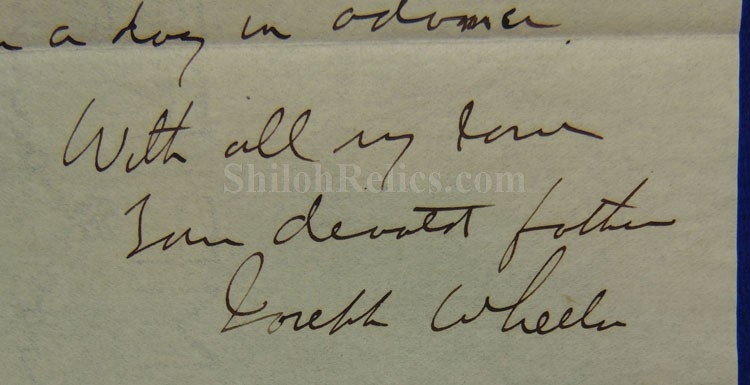 a day in advance
With all my love
ShilohRelics.com
Your devoted father
Joseph Wheeler